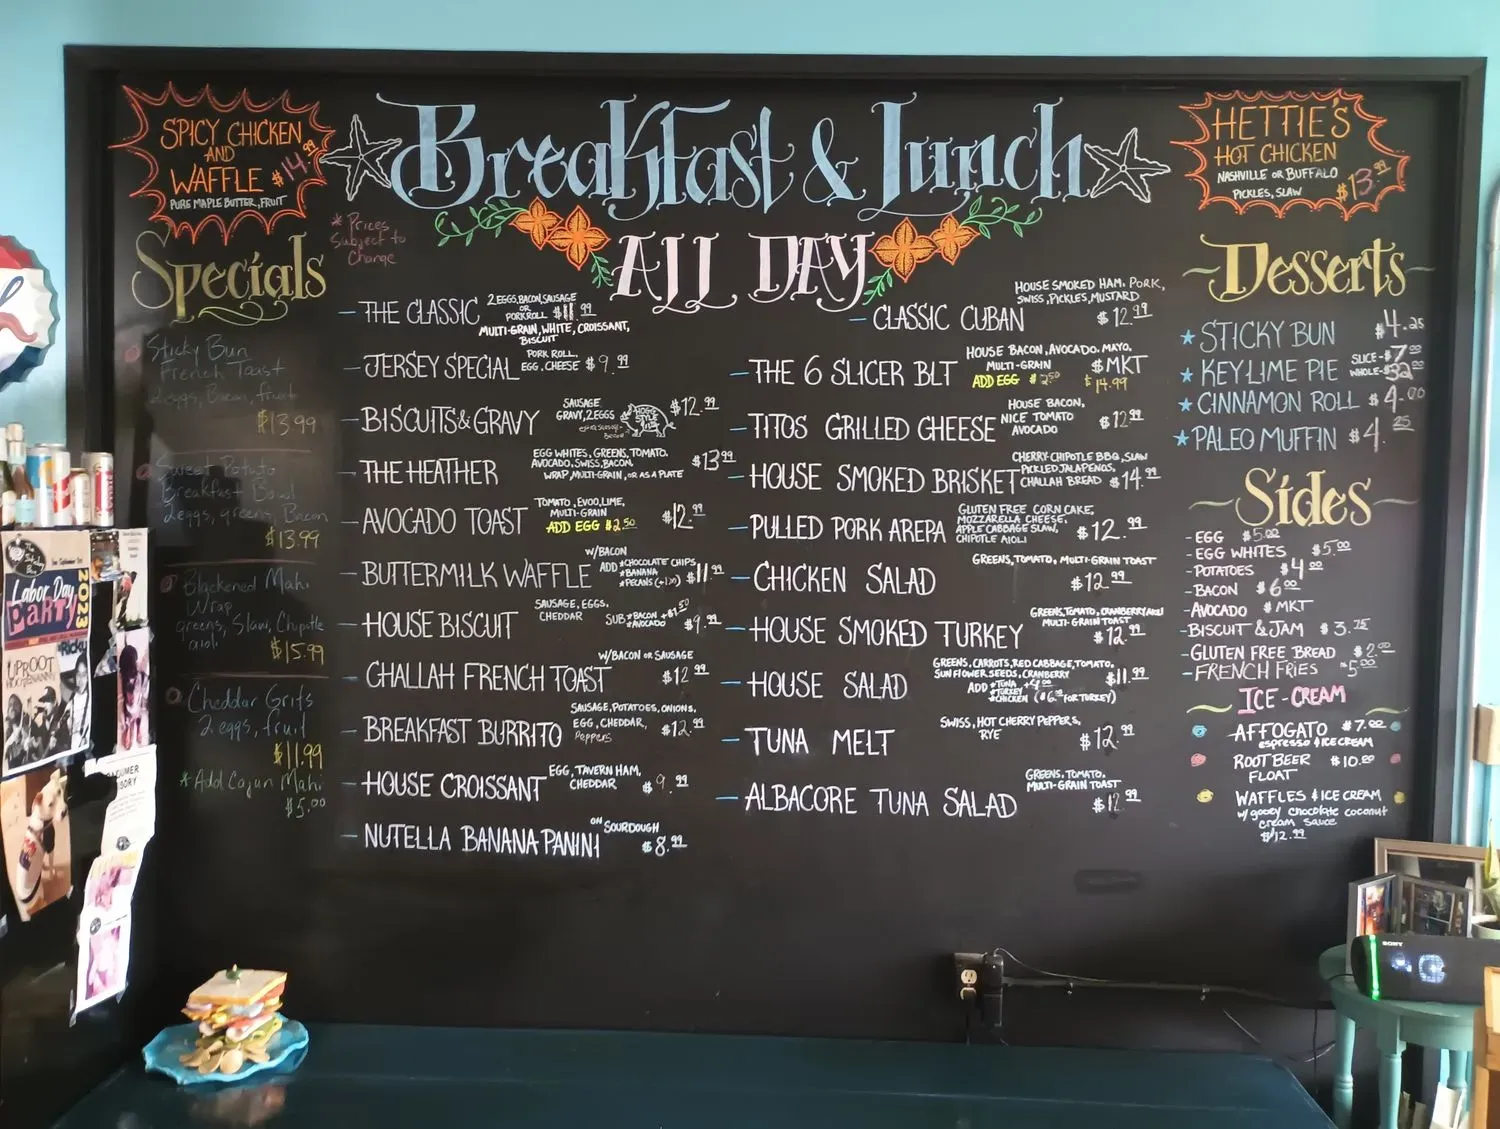 SPICY CHICKEN
AND
WAFFLE $14.99
PURE MAPLE BUTTER, FRUIT
Breakfast & Lunch
ALL DAY
* Prices
Subject to
Change
HETTIE'S
HOT CHICKEN
NASHVILLE OR BUFFALO
PICKLES, SLAW $13.99
Specials
Sticky Bun
French Toast
2 eggs, Bacon, fruit
$13.99
Sweet Potato
Breakfast Bowl
2 eggs, greens, Bacon
$13.99
Blackened Mahi
Wrap
greens, Slaw, Chipotle
aioli
$15.99
Cheddar Grits
2 eggs, fruit
$11.99
* Add Cajun Mahi
$5.00
- THE CLASSIC 2 EGGS, BACON, SAUSAGE
OR
PORKROLL $11.99
MULTI-GRAIN, WHITE, CROISSANT,
BISCUIT
- JERSEY SPECIAL PORK ROLL,
EGG, CHEESE $9.99
- BISCUITS & GRAVY SAUSAGE
GRAVY, 2 EGGS $12.99
- THE HEATHER EGG WHITES, GREENS, TOMATO,
AVOCADO, SWISS, BACON,
WRAP, MULTI-GRAIN, OR AS A PLATE $13.99
- AVOCADO TOAST TOMATO, EVOO, LIME,
MULTI-GRAIN $12.99
ADD EGG $2.50
- BUTTERMILK WAFFLE W/BACON
ADD *CHOCOLATE CHIPS
*BANANA
*PECANS (+1.00) $11.99
- HOUSE BISCUIT SAUSAGE, EGGS,
CHEDDAR SUB *BACON +$1.50
*AVOCADO $9.99
- CHALLAH FRENCH TOAST W/BACON OR SAUSAGE
$12.99
- BREAKFAST BURRITO SAUSAGE, POTATOES, ONIONS,
EGG, CHEDDAR,
Peppers $12.99
- HOUSE CROISSANT EGG, TAVERN HAM,
CHEDDAR $9.99
- NUTELLA BANANA PANINI ON SOURDOUGH
$8.99
- CLASSIC CUBAN HOUSE SMOKED HAM, PORK,
SWISS, PICKLES, MUSTARD
$12.99
- THE 6 SLICER BLT HOUSE BACON, AVOCADO, MAYO,
MULTI-GRAIN $MKT
ADD EGG $2.50 $14.99
- TITOS GRILLED CHEESE HOUSE BACON,
NICE TOMATO
AVOCADO $12.99
- HOUSE SMOKED BRISKET CHERRY-CHIPOTLE BBQ, SLAW
PICKLED JALAPENOS,
CHALLAH BREAD $14.99
- PULLED PORK AREPA GLUTEN FREE CORN CAKE,
MOZZARELLA CHEESE,
APPLE CABBAGE SLAW,
CHIPOTLE AIOLI $12.99
- CHICKEN SALAD GREENS, TOMATO, MULTI-GRAIN TOAST
$12.99
- HOUSE SMOKED TURKEY GREENS, TOMATO, CRANBERRY AIOLI
MULTI-GRAIN TOAST
$12.99
- HOUSE SALAD GREENS, CARROTS, RED CABBAGE, TOMATO,
SUNFLOWER SEEDS, CRANBERRY $11.99
ADD *TUNA
*TURKEY
*CHICKEN FOR TURKEY)
- TUNA MELT SWISS, HOT CHERRY PEPPERS,
RYE $12.99
- ALBACORE TUNA SALAD GREENS, TOMATO,
MULTI-GRAIN TOAST
$12.99
Desserts
STICKY BUN $4.25
KEY LIME PIE SLICE-$7.00
WHOLE-$32.00
CINNAMON ROLL $4.00
PALEO MUFFIN $4.25
Sides
- EGG $5.00
- EGG WHITES $5.00
- POTATOES $4.00
- BACON $6.00
- AVOCADO $MKT
- BISCUIT & JAM $3.75
- GLUTEN FREE BREAD $2.00
- FRENCH FRIES $5.00
ICE-CREAM
AFFOGATO $7.00
espresso & ICE CREAM
ROOT BEER $10.00
FLOAT
WAFFLES & ICE CREAM
w/ gooey chocolate coconut
cream sauce
$12.99
Labor Day
PARTY
2023
Ricky
UPROOT
HOOTENANNY
SONY